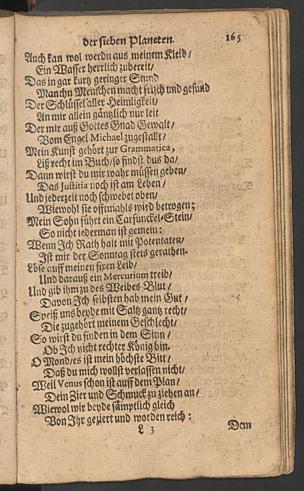 der sieben Planeten. 165
Auch kan wol werdn aus meinem Kleid/
Ein Wasser herrlich zubereit/
Das in gar kurtz geringer Stund
Manchn Menschen macht frisch und gesund
Der Schlüssel aller Heimligkeit/
An mir allein gäntzlich leit
Der mir auß Gottes Gnad Gewalt/
Vom Engel Michael zugestalt/
Mein Kunst gehört zur Grammatica,
Liß recht im Buch/so findst dus da/
Dann wirst du mir wahr müssen geben/
Das Justitia noch ist am Leben/
Und jederzeit noch schwebet oben/
Wiewohl sie offtmahls wird betrogen;
Mein Sohn führt ein Carfunckel-Stein/
So nicht jederman ist gemein:
Wenn Ich Rath halt mit Potentaten/
Ist mir der Sonntag stets gerathen.
Löse auff meinen fixen Leib/
Und darauß ein Mercurium treib/
Und gib ihm zu des Weibes Blut/
Davon Ich selbsten hab mein Gut/
Speiß uns beyde mit Saltz gantz recht/
Die zugehört meinem Geschlecht/
So wirst du finden in dem Sinn/
Ob Ich nicht rechter König bin.
O Mond/es ist mein höchste Bitt/
Daß du mich wollst verlassen nicht/
Weil Venus schon ist auff dem Plan/
Dein Zier und Schmuck zu ziehen an/
Wiewol wir beyde sämptlich gleich
Von Ihr geziert und worden reich:
L 3 Dem